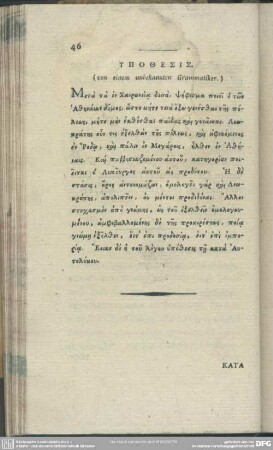 46
ΥΠΟΘΕΣΙΣ.
(von einem unbekannten Grammatiker.)
Μετὰ τὰ ἐν Χαιρωνείᾳ δεινὰ, ψήφισμα ποιεῖ ὁ τῶν
Ἀθηναίων δῆμος, ὥστε μήτε τινὰ ἔξω γενέσθαι τῆς πό-
λεως, μήτε μὴν ἐκθέσθαι παῖδας καὶ γυναῖκας. Λεω-
κράτης οὖν τις ἐξελθὼν τῆς πόλεως, καὶ ἀφικόμενος
ἐν Ῥόδῳ, καὶ πάλιν ἐν Μεγάροις, ἦλθεν ἐν Ἀθή-
ναις. Καὶ παῤῥησιαζομένου αὐτοῦ, κατηγορίαν ποι-
εῖται ὁ Λυκοῦργος αὐτοῦ ὡς προδότου. Ἡ δὲ
στάσις, ὅρος ἀντονομάζων, ὁμολογεῖ γὰρ καὶ Λεω-
κράτης, ἀπολιπεῖν, οὐ μέντοι προδιδόναι. Ἄλλοι
στοχασμὸν ἀπὸ γνώμης, ὡς τοῦ ἐξελθεῖν ὁμολογου-
μένου, ἀμφιβαλλομένης δὲ τῆς προαιρέσεως, ποίᾳ
γνώμῃ ἐξῆλθεν, εἴτ' ἐπὶ προδοσίᾳ, εἴτ' ἐπὶ ἐμπο-
ρίᾳ. Ἔοικε δὲ ἡ τοῦ λόγου ὑπόθεσις τῇ κατὰ Αὐ-
τολύκου.
ΚΑΤΑ